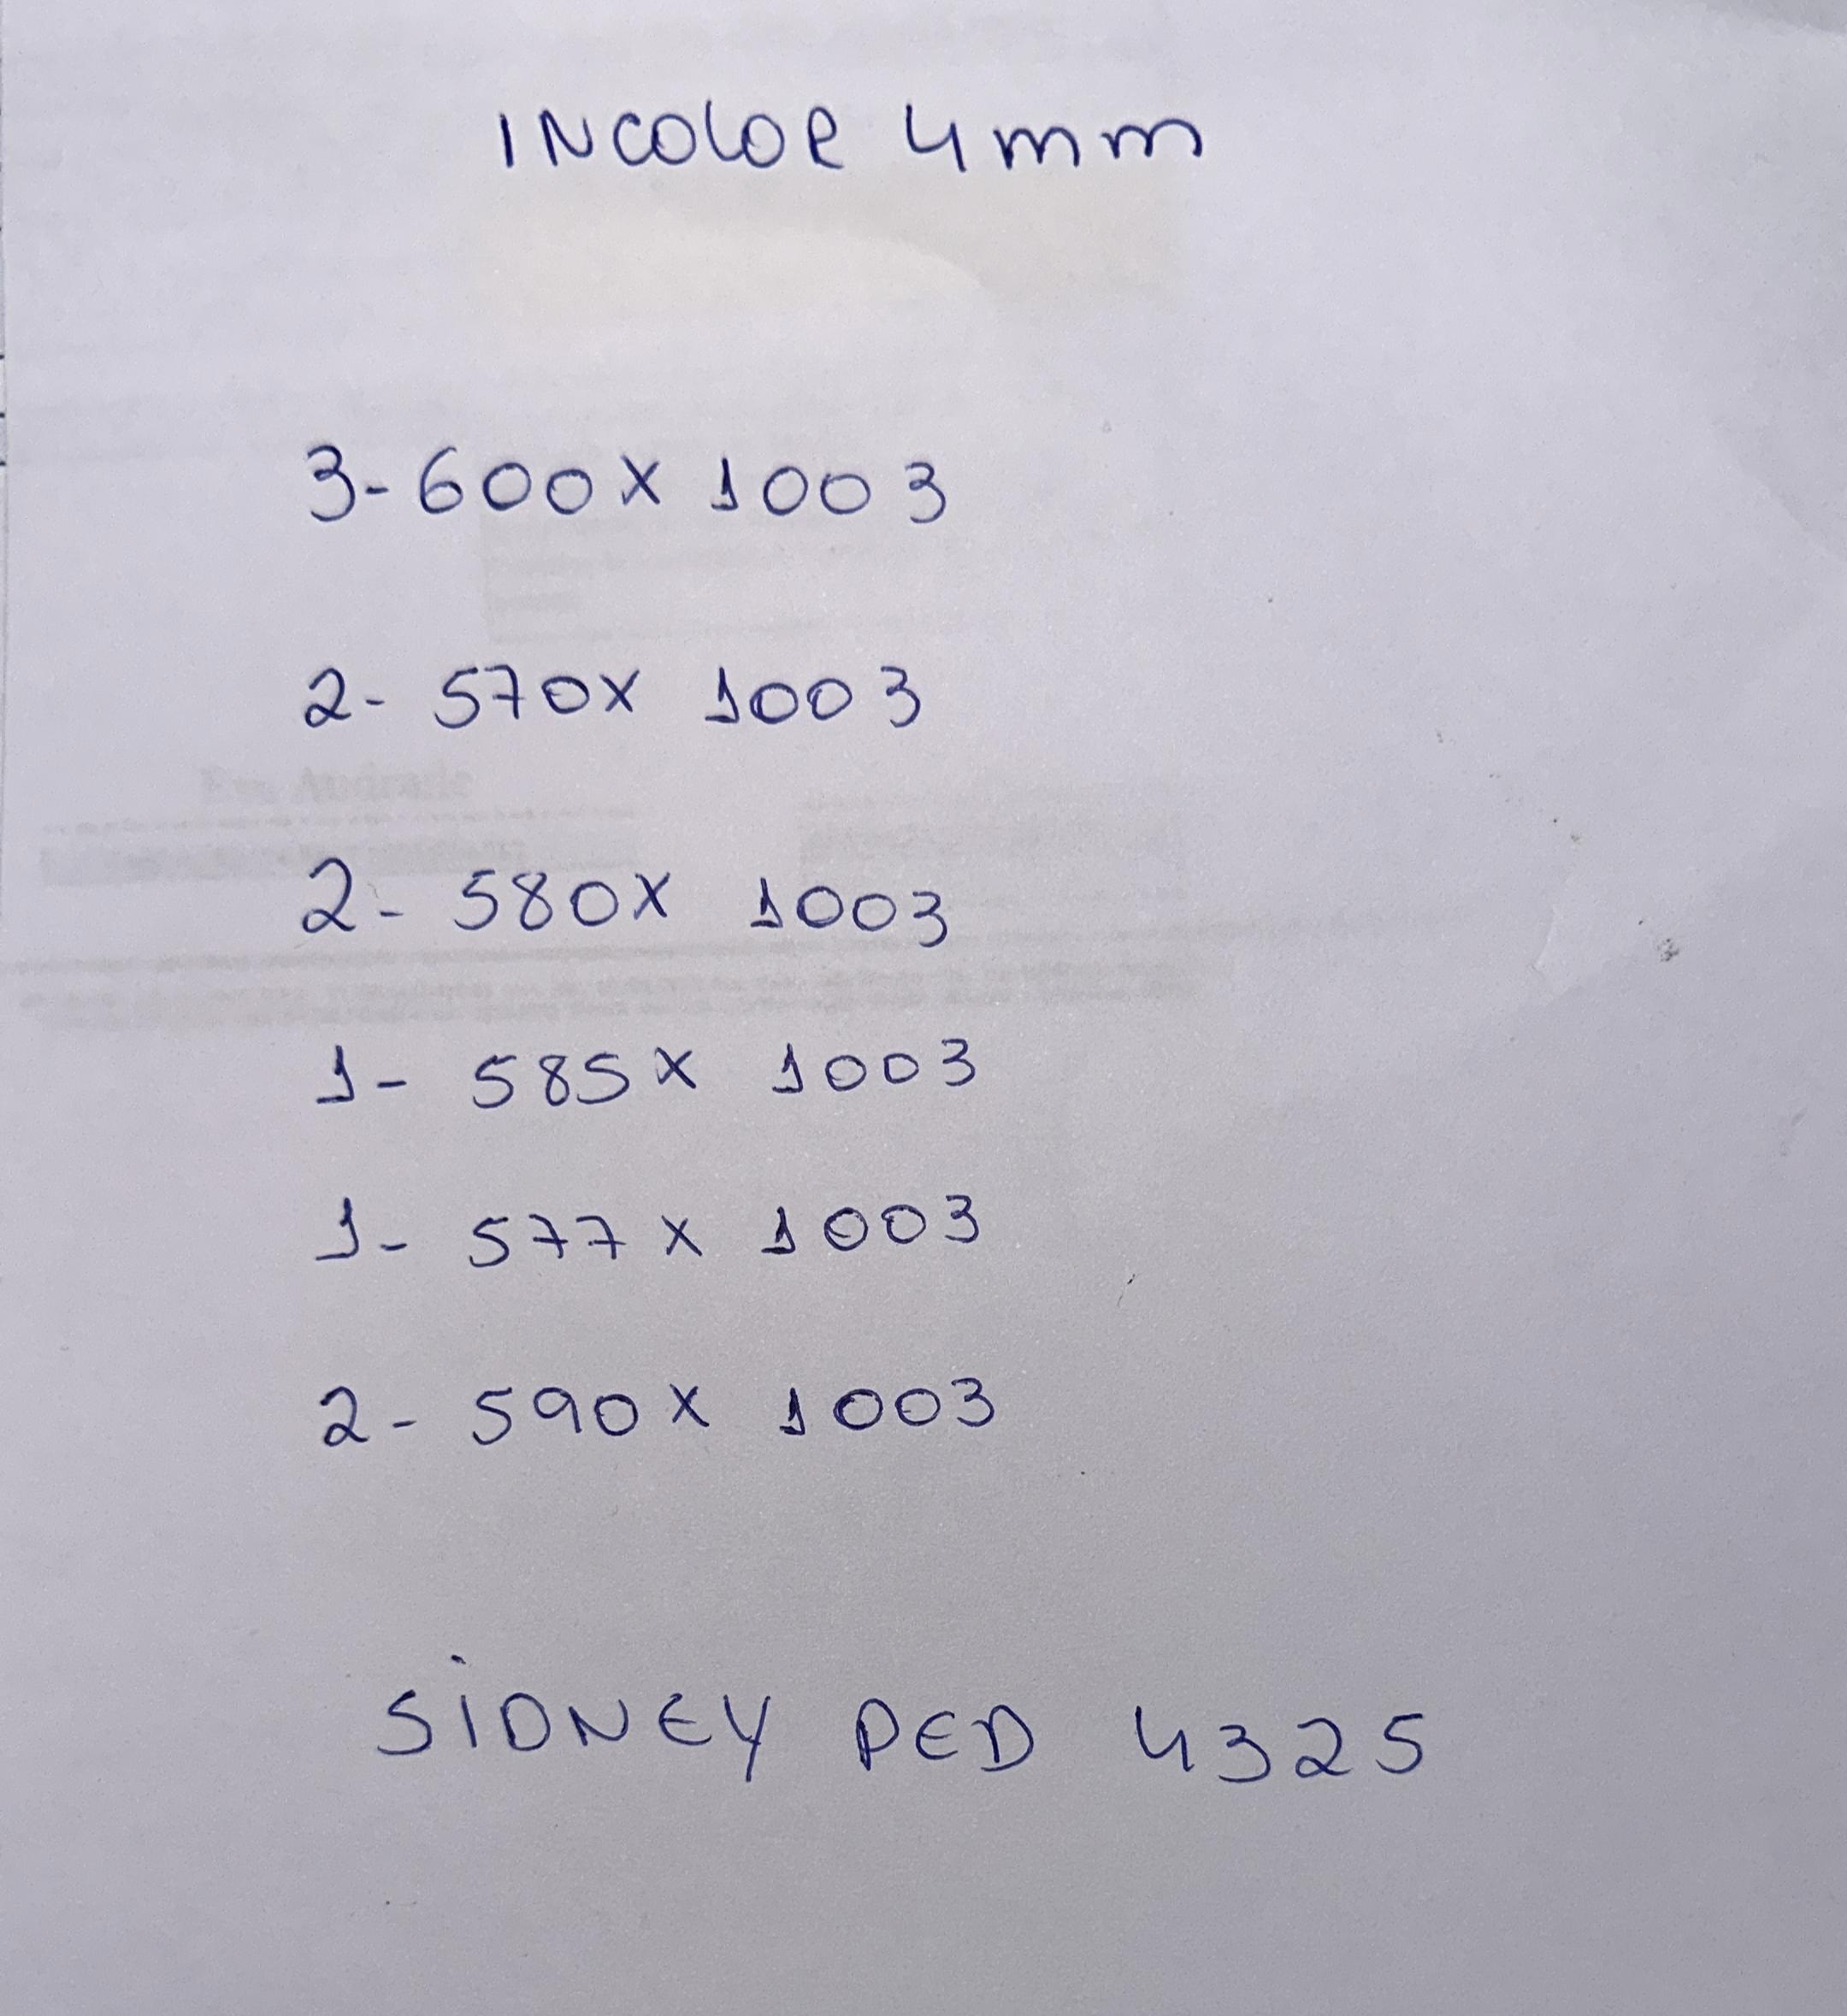 INCOLOR 4mm
3-600x 1003
2- 570x 1003
2- 580x 1003
1- 585x 1003
1- 577x 1003
2- 590x 1003
SIDNEY PED 4325